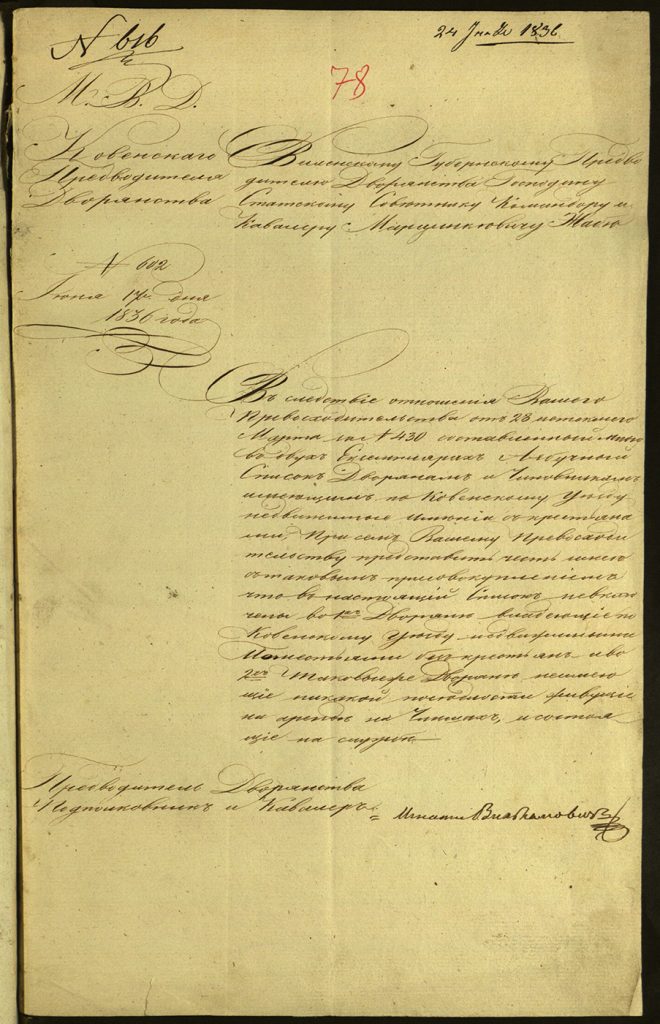 N 616
24 Іюня 1836
78
М. В. Д.
Ковенскаго
Предводителя
Дворянства
N 602
Іюня 17 дня
1836 года
Виленскому Губернскому Предво
дителю Дворянства Господину
Статскому Совѣтнику Командору и
Кавалеру Марцинкевичу Жабѣ
Въ следствіе отношенія Вашего
Превосходительства отъ 28 истекшаго
Марта за N 430 составленный мною
въ двухъ Екземплярахъ Азбучный
Списокъ Дворянамъ и Чиновникамъ
имеющимъ по Ковенскому Уезду
недвижимые имѣнія съ крестьяна
ми, При семъ Вашему Превосходи
тельству представить честь имею
съ таковымъ присовокупленіемъ
что въ настоящій Списокъ невклю
чены во 1хъ Дворяне владеющіе по
Ковенскому уезду недвижимыми
без крестьянъ и во
2хъ Таковые же Дворяне неимею
щіе никакой поседлости живущіе
на аренде на Чиншахъ, и состоя
щіе на службѣ
Предводитель Дворянства
Подполковникъ и Кавалеръ